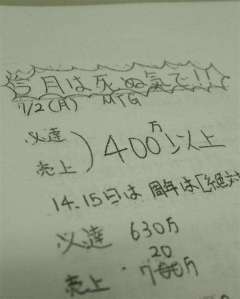 今月は死ぬ気で!!
1/2(月) MTG
必達
売上 ) 400万以上
14.15日は 周年は「絶対
必達 630万
20
売上 7